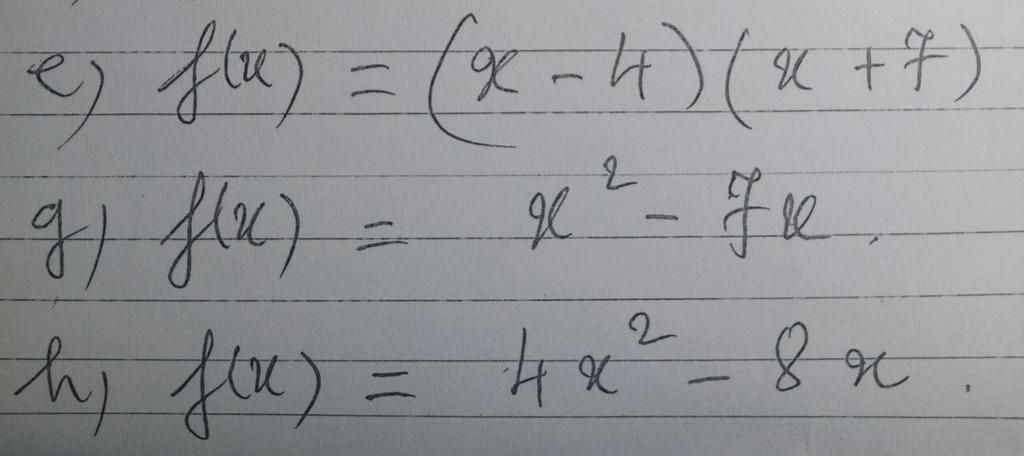 e) f(x) = (x - 4)(x + 7)
g) f(x) = x² - 7x.
h) f(x) = 4x² - 8x.